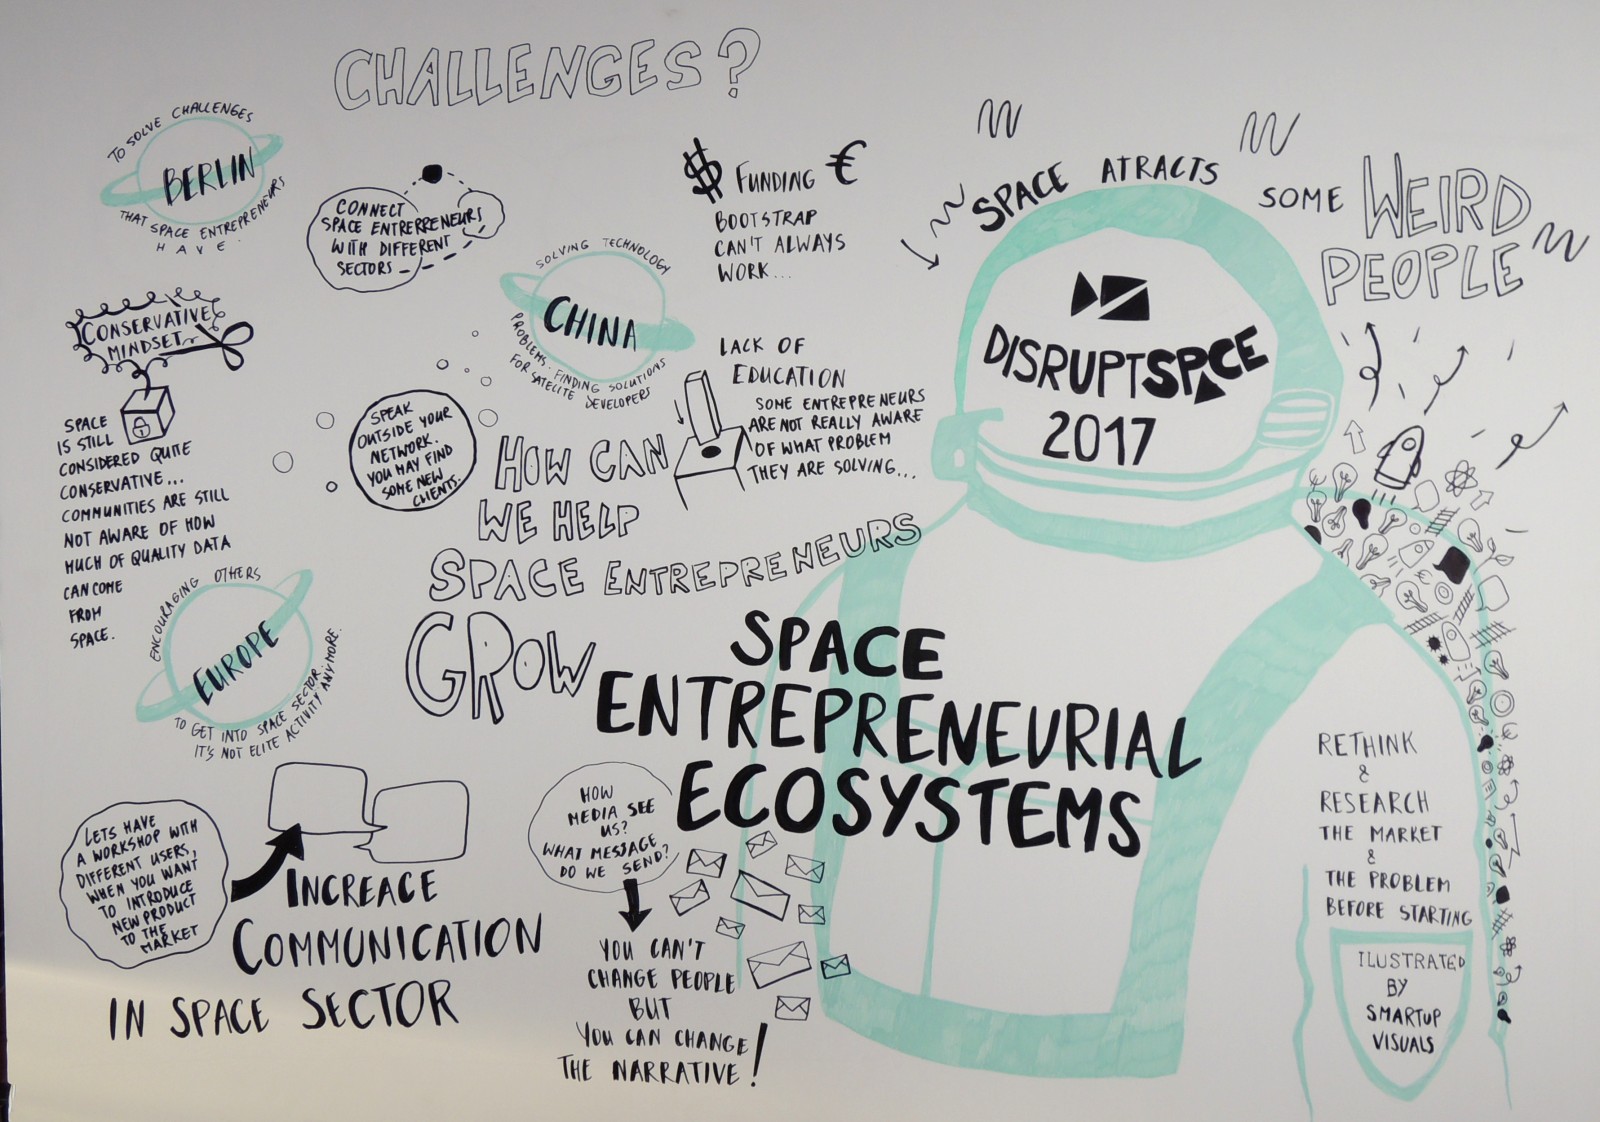 CHALLENGES?
TO SOLVE CHALLENGES
BERLIN
THAT SPACE ENTREPRENEURS
HAVE
CONNECT
SPACE ENTRERRENEURS
WITH DIFFERENT
SECTORS
$ FUNDING €
BOOTSTRAP
CAN'T ALWAYS
WORK...
SPACE ATRACTS SOME WEIRD
PEOPLE
CONSERVATIVE
MINDSET
SPACE
IS STILL
CONSIDERED QUITE
CONSERVATIVE...
COMMUNITIES ARE STILL
NOT AWARE OF HOW
MUCH OF QUALITY DATA
CAN COME
FROM
SPACE.
SOLVING TECHNOLOGY
CHINA
PROBLEMS. FINDING SOLUTIONS
FOR SATELITE DEVELOPERS
SPEAK
OUTSIDE YOUR
NETWORK.
YOU MAY FIND
SOME NEW
CLIENTS.
LACK OF
EDUCATION
SOME ENTREPRENEURS
ARE NOT REALLY AWARE
OF WHAT PROBLEM
THEY ARE SOLVING...
DISRUPTSPACE
2017
HOW CAN
WE HELP
SPACE ENTREPRENEURS
GROW
ENCOURAGING OTHERS
EUROPE
TO GET INTO SPACE SECTOR.
IT'S NOT ELITE ACTIVITY ANYMORE.
SPACE
ENTREPRENEURIAL
ECOSYSTEMS
LETS HAVE
A WORKSHOP WITH
DIFFERENT USERS,
WHEN YOU WANT
TO INTRODUCE
NEW PRODUCT
TO THE
MARKET
INCREACE
COMMUNICATION
IN SPACE SECTOR
HOW
MEDIA SEE
US?
WHAT MESSAGE
DO WE SEND?
YOU CAN'T
CHANGE PEOPLE
BUT
YOU CAN CHANGE
THE NARRATIVE!
RETHINK
&
RESEARCH
THE MARKET
&
THE PROBLEM
BEFORE STARTING
ILUSTRATED
BY
SMARTUP
VISUALS